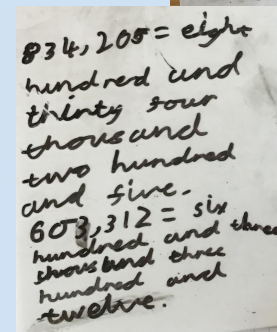 834,205 = eight
hundred and
thirty four
thousand
two hundred
and five.
603,312 = six
hundred and three
thousand three
hundred and
twelve.